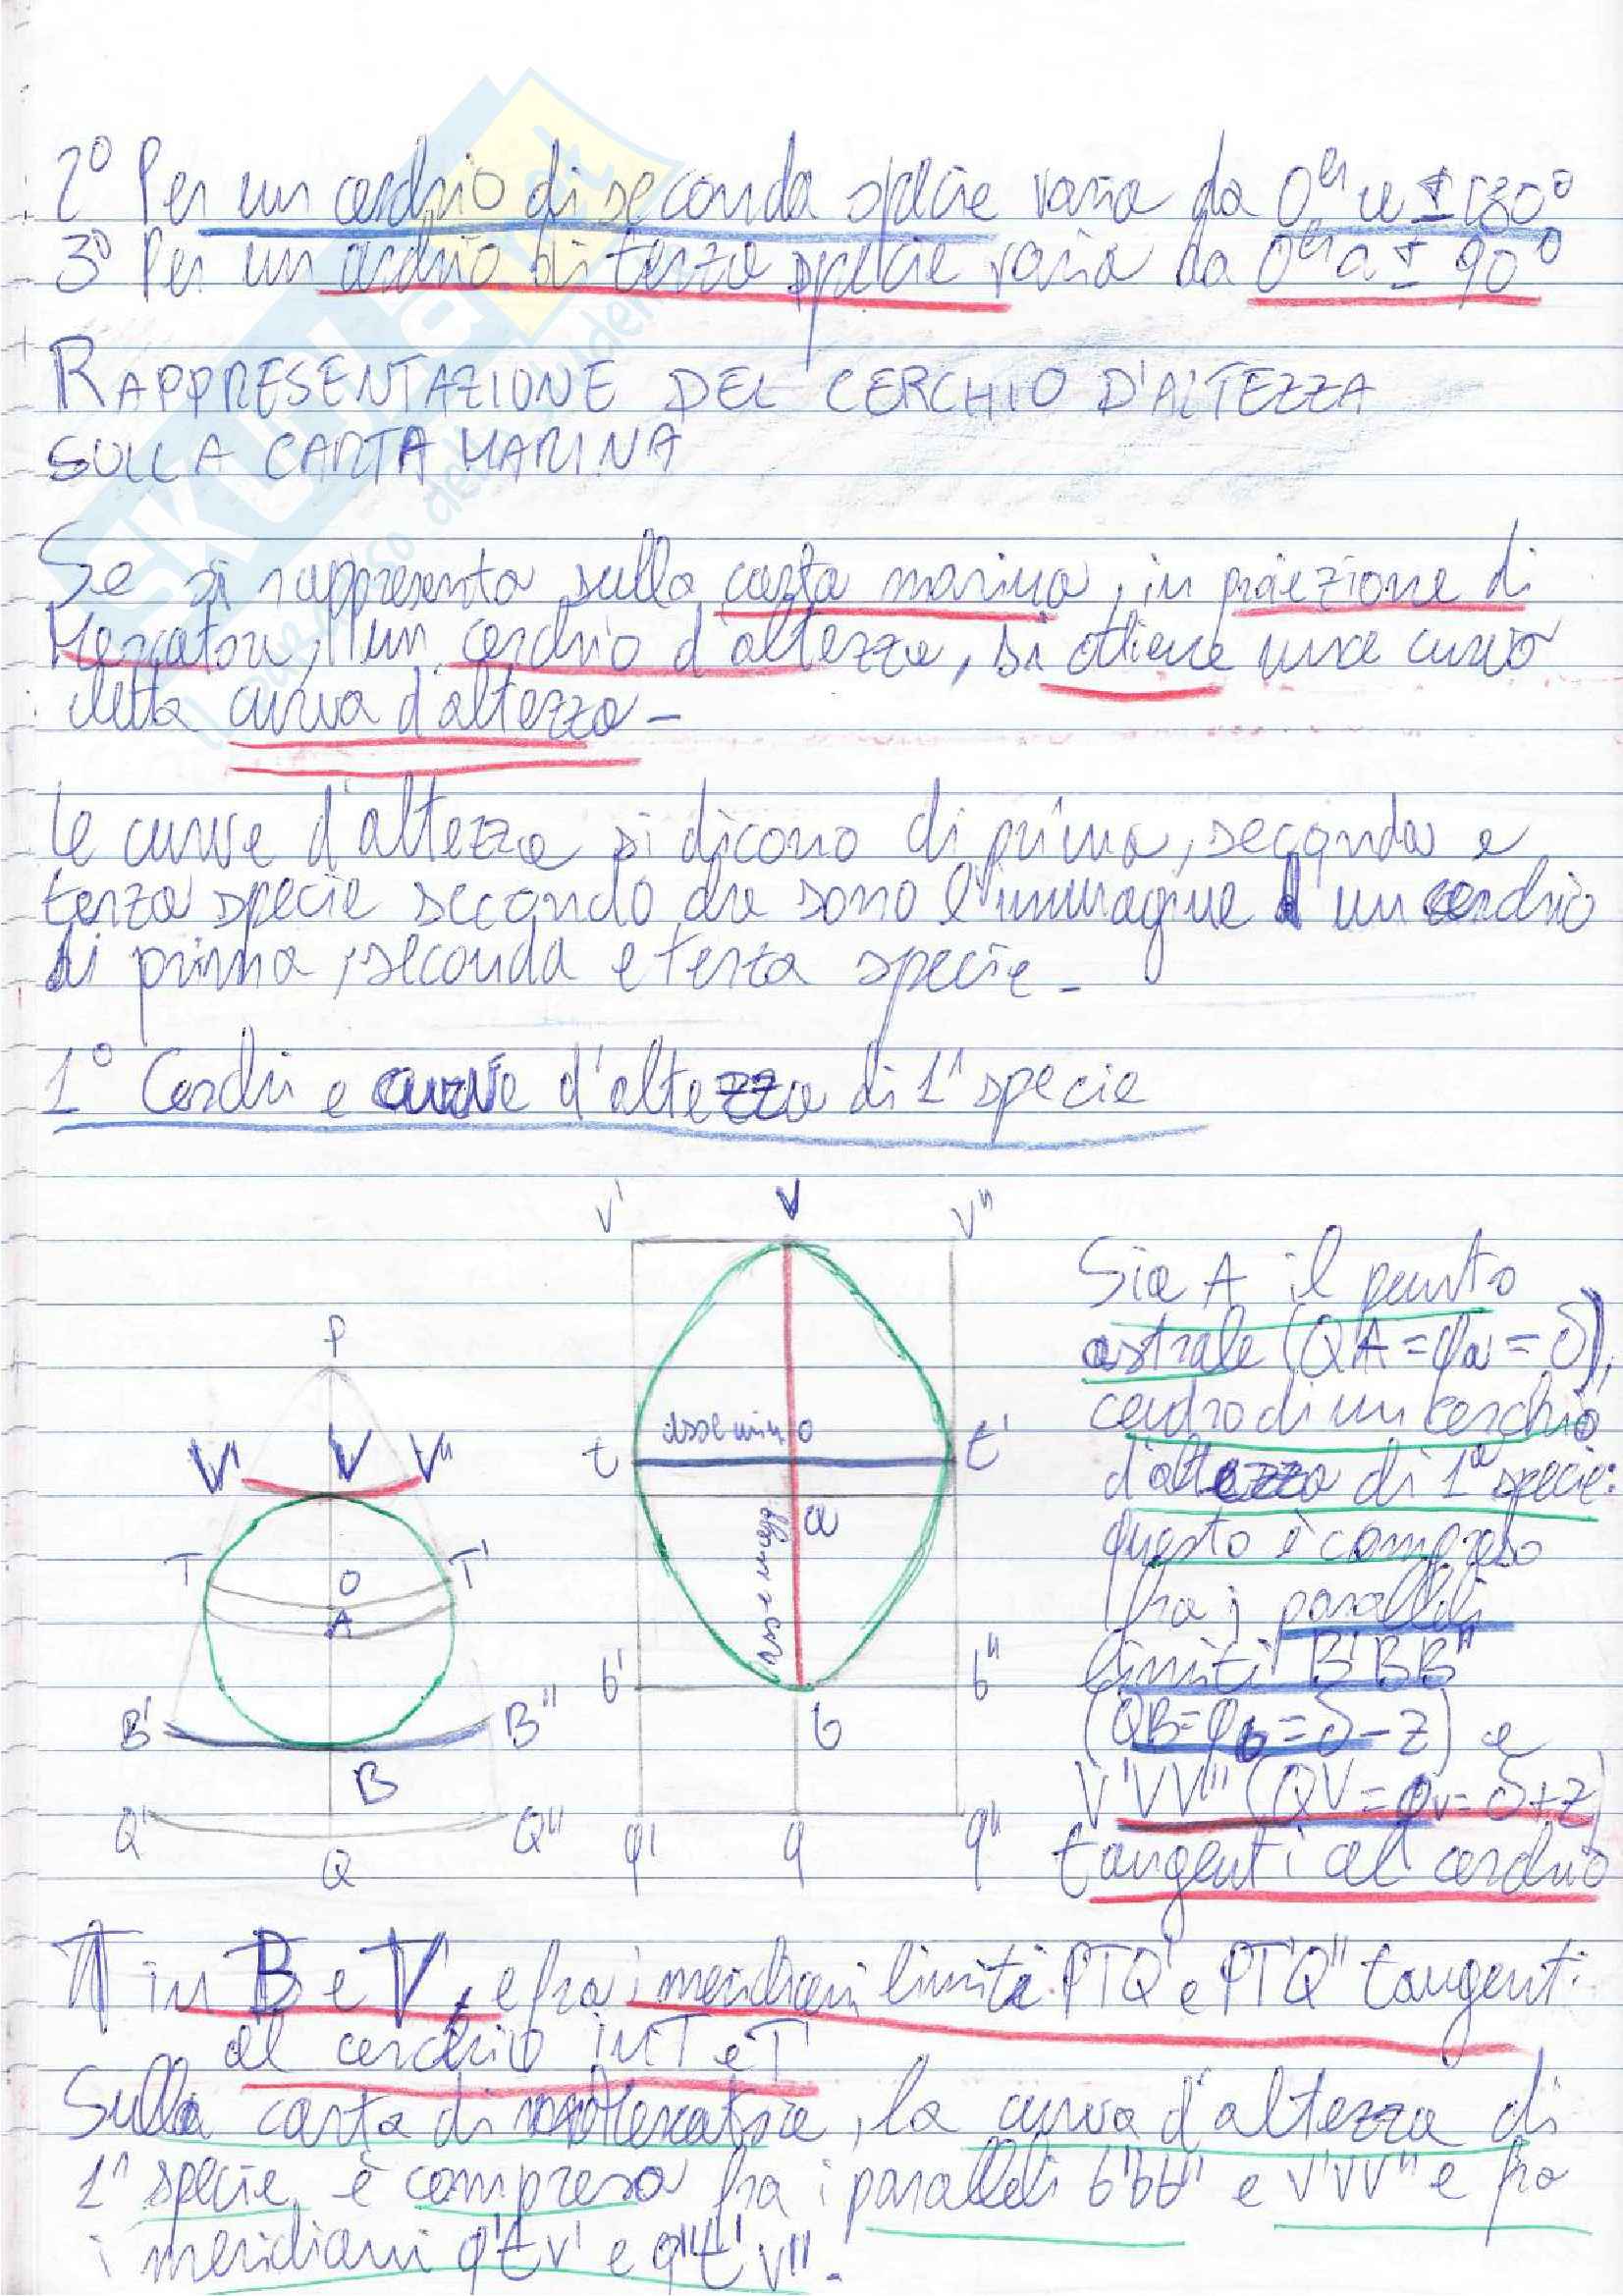 2° Per un cerchio di seconda specie varia da 0° a ± 180°
3° Per un cerchio di terza specie varia da 0° a ± 90°
RAPPRESENTAZIONE DEL CERCHIO D'ALTEZZA
SULLA CARTA MARINA
Se si rappresenta sulla carta marina, in proiezione di
Mercatore, un cerchio d'altezza, si ottiene una curva
detta curva d'altezza -
Le curve d'altezza si dicono di prima, seconda e
terza specie secondo che sono l'immagine d'un cerchio
di prima, seconda e terza specie -
1° Cerchi e curve d'altezza di 1ª specie
V' V V"
P
V' V V"
asse min O
t t'
T O T'
A
a
asse magg.
B' B"
B
b' b"
b
Q' Q"
Q
q' q q"
Sia A il punto
astrale (QA = φa = δ),
centro di un cerchio
d'altezza di 1ª specie:
questo è compreso
fra i paralleli
limiti B'BB"
(QB = φb = δ - z) e
V'VV" (QV = φv = δ + z)
tangenti al cerchio
in B e V, e fra i meridiani limiti PTQ' e PT'Q" tangenti
al cerchio in T e T'
Sulla carta di Mercatore, la curva d'altezza di
1ª specie, è compresa fra i paralleli b'bb" e v'vv" e fra
i meridiani q'tv' e q"t'v".